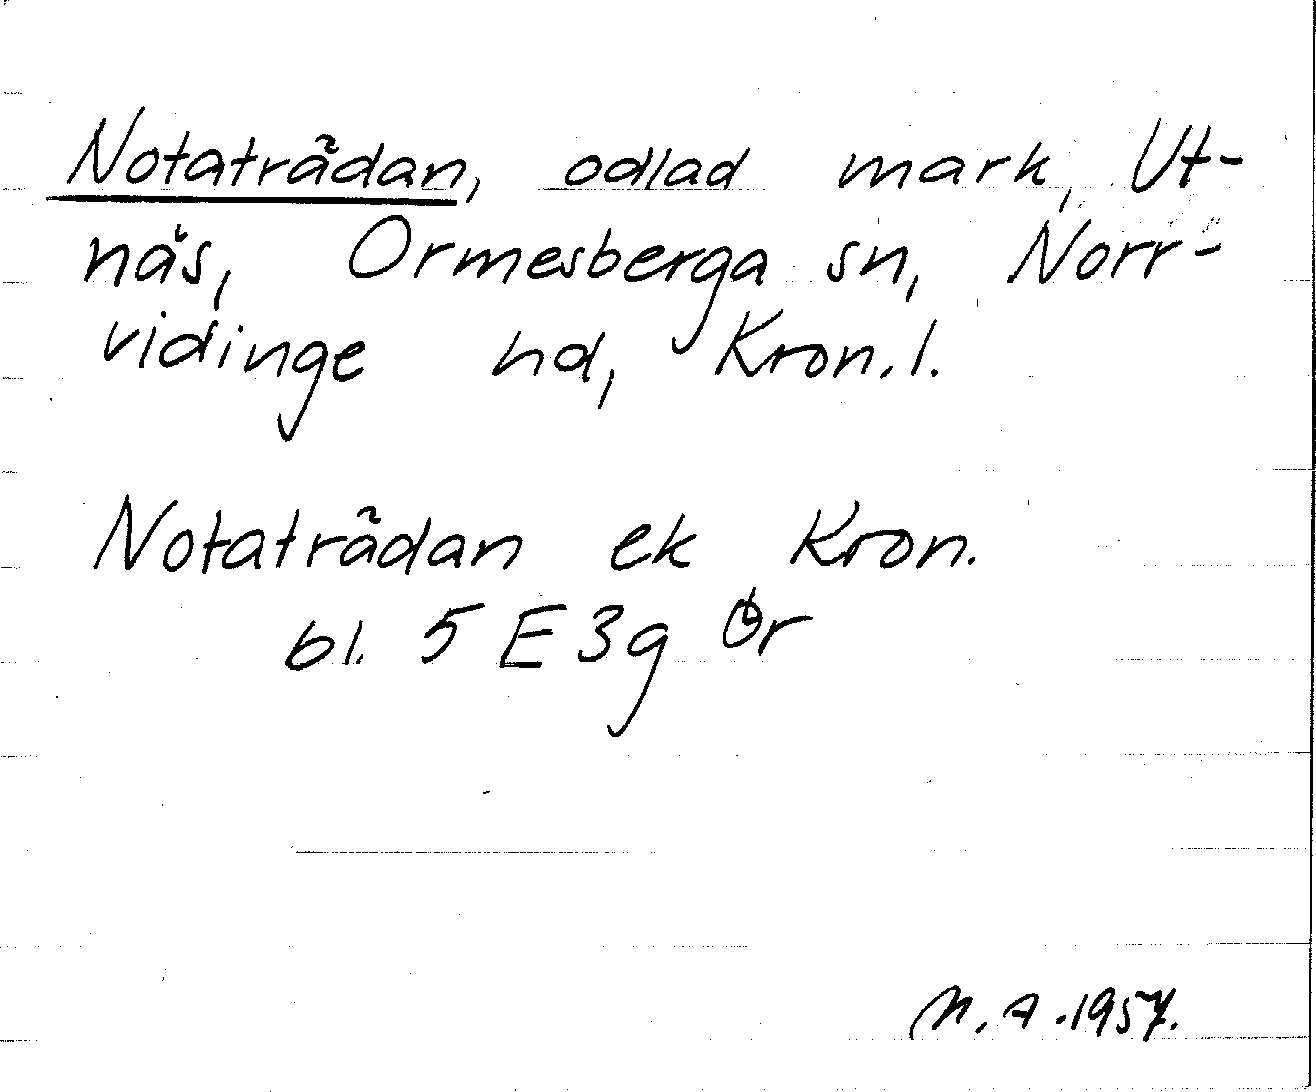 Notaträdan, odlad mark, Ut-
näs, Ormesberga sn, Norr-
vidinge hd, Kron.l.
Notaträdan ek Kron.
bl. 5 E 3g Ör
M.A.1957.